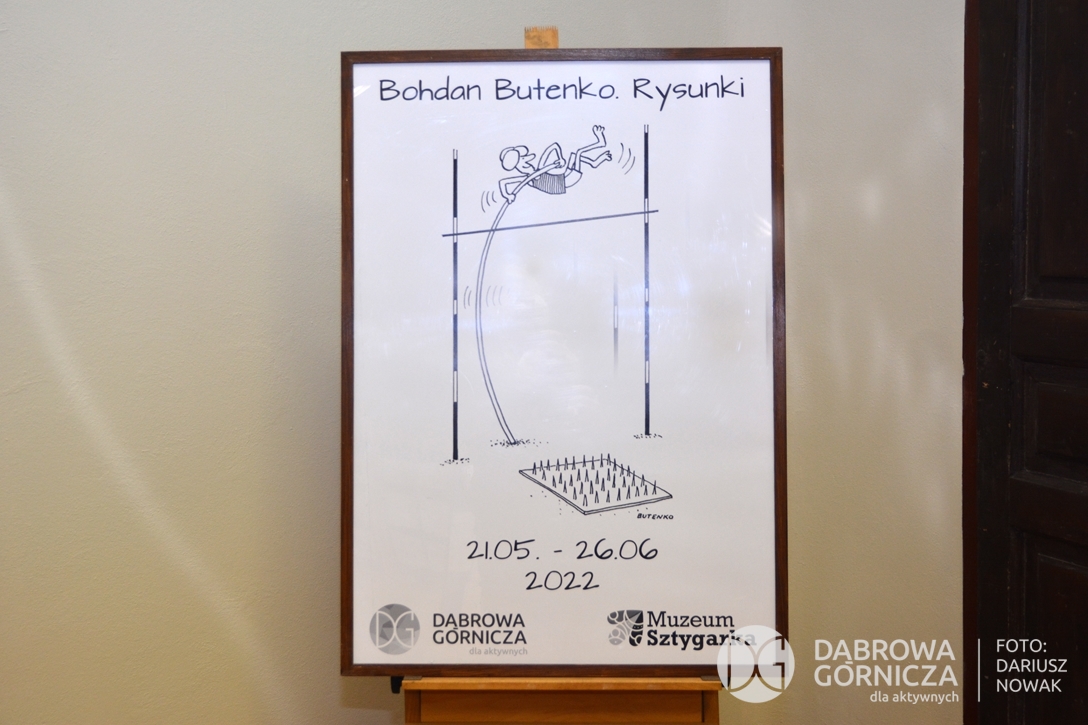 Bohdan Butenko. Rysunki
BUTENKO
21.05. - 26.06
2022
DG
DĄBROWA
GÓRNICZA
dla aktywnych
Muzeum
Sztygarka
DG
DĄBROWA
GÓRNICZA
dla aktywnych
FOTO:
DARIUSZ
NOWAK